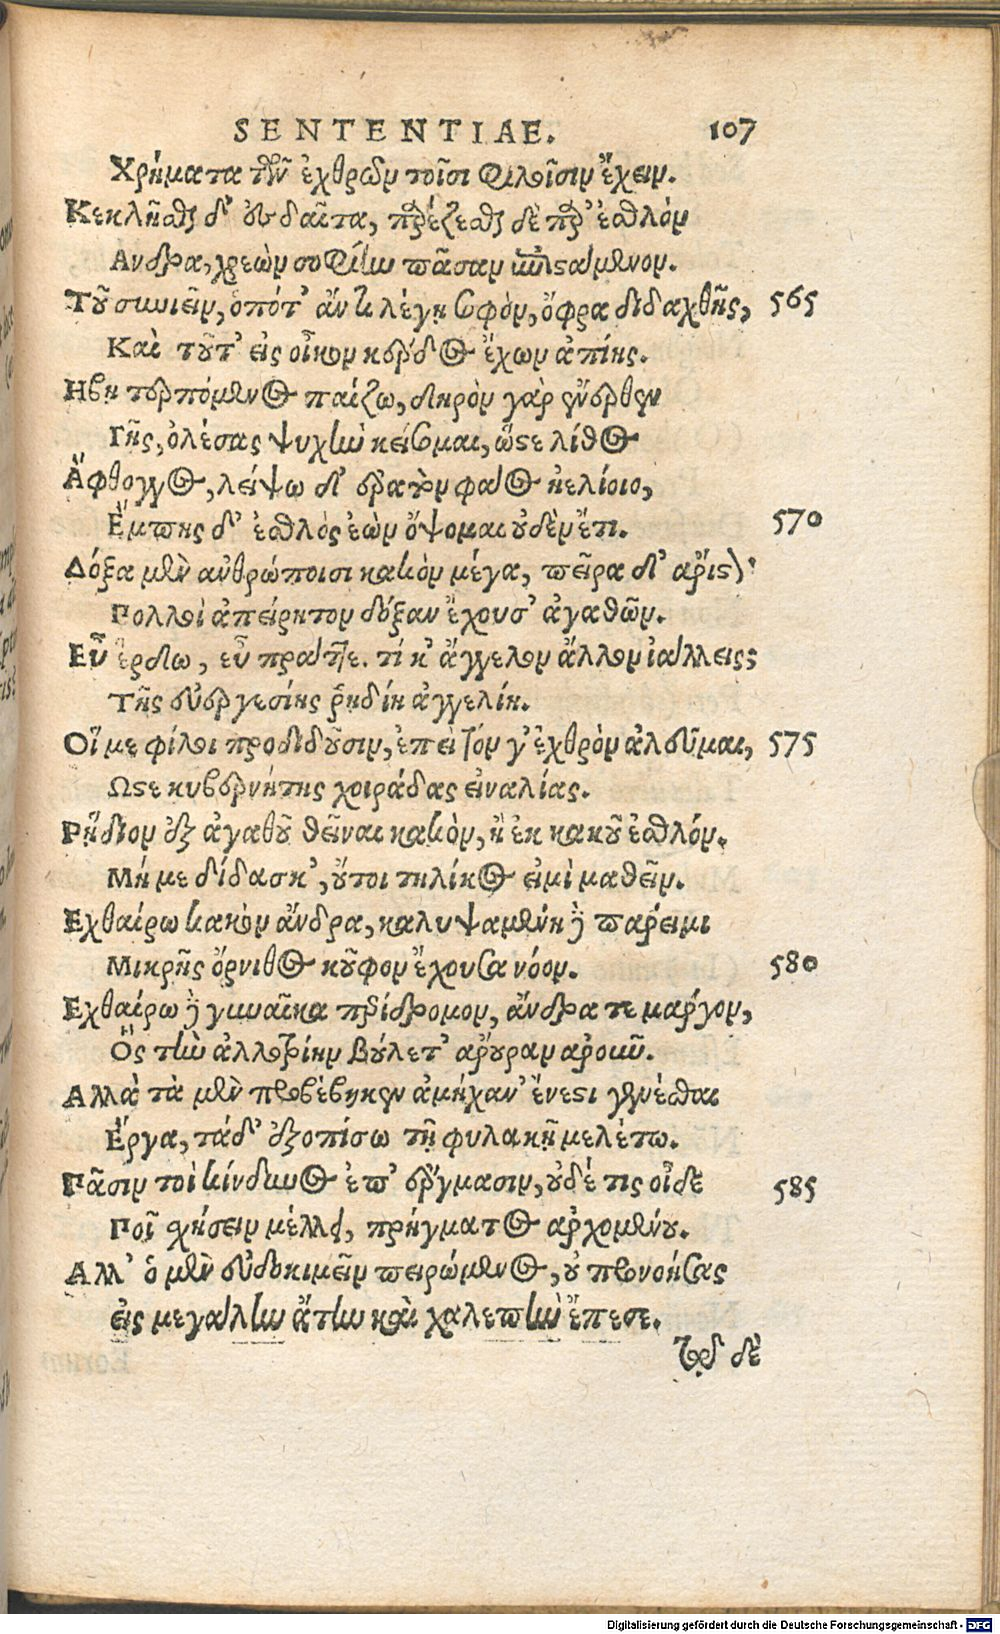 SENTENTIAE. 107
Χρήματα τῶν ἐχθρῶν τοῖσι φιλοῖσιν ἔχειν.
Κεκλῆσθαι δ' ἐς δαῖτα, παρέζεσθαι δὲ παρ' ἐσθλὸν
Ανδρα, χρεὼν σοφίην πᾶσαν ἐπιστάμενον.
Τοῦ συνιεῖν, ὁπότ' ἄν τι λέγῃ σοφὸν, ὄφρα διδαχθῇς, 565
Καὶ τοῦτ' εἰς οἶκον κέρδος ἔχων ἀπίῃς.
Ηβῃ τερπόμενος παίζω, δηρὸν γὰρ ἔνερθεν
Γῆς, ὀλέσας ψυχὴν κείσομαι, ὥστε λίθος
Ἄφθογγος, λείψω δ' ἐρατὸν φάος ἠελίοιο,
Ἔμπης δ' ἐσθλὸς ἐὼν ὄψομαι οὐδὲν ἔτι. 570
Δόξα μὲν ἀνθρώποισι κακὸν μέγα, πεῖρα δ' ἄριστον·
Πολλοὶ ἀπείρητον δόξαν ἔχουσ' ἀγαθῶν.
Εὖ ἔρδων, εὖ πράττε. τί κ' ἄγγελον ἄλλον ἰάλλεις;
Τῆς εὐεργεσίης ῥηδίη ἀγγελίη.
Οἵ με φίλοι προδιδοῦσιν, ἐπεὶ τόν γ' ἐχθρὸν ἀλεῦμαι, 575
Ωστε κυβερνήτης χοιράδας εἰναλίας.
Ρήδιον ἐξ ἀγαθοῦ θεῖναι κακὸν, ἢ ἐκ κακοῦ ἐσθλόν.
Μή με δίδασκ', οὔτοι τηλίκος εἰμὶ μαθεῖν.
Εχθαίρω κακὸν ἄνδρα, καλυψαμένη δὲ πάρειμι
Μικρῆς ὄρνιθος κοῦφον ἔχουσα νόον. 580
Εχθαίρω δὲ γυναῖκα περίδρομον, ἄνδρα τε μάργον,
Ὃς τὴν ἀλλοτρίην βούλετ' ἄρουραν ἀροῦν.
Αλλὰ τὰ μὲν προβέβηκεν ἀμήχαν' ἔνεστι γενέσθαι
Ἔργα, τάδ' ἐξοπίσω τῇ φυλακῇ μελέτω.
Πᾶσιν τοὶ κίνδυνος ἐπ' ἔργμασιν, οὐδέ τις οἶδε 585
Ποῖ σχήσειν μέλλει, πρήγματος ἀρχομένου.
Αλλ' ὁ μὲν εὐδοκιμεῖν πειρώμενος, οὐ προνοήσας
εἰς μεγάλην ἄτην καὶ χαλεπὴν ἔπεσε.
τῷ δὲ
Digitalisierung gefördert durch die Deutsche Forschungsgemeinschaft - DFG